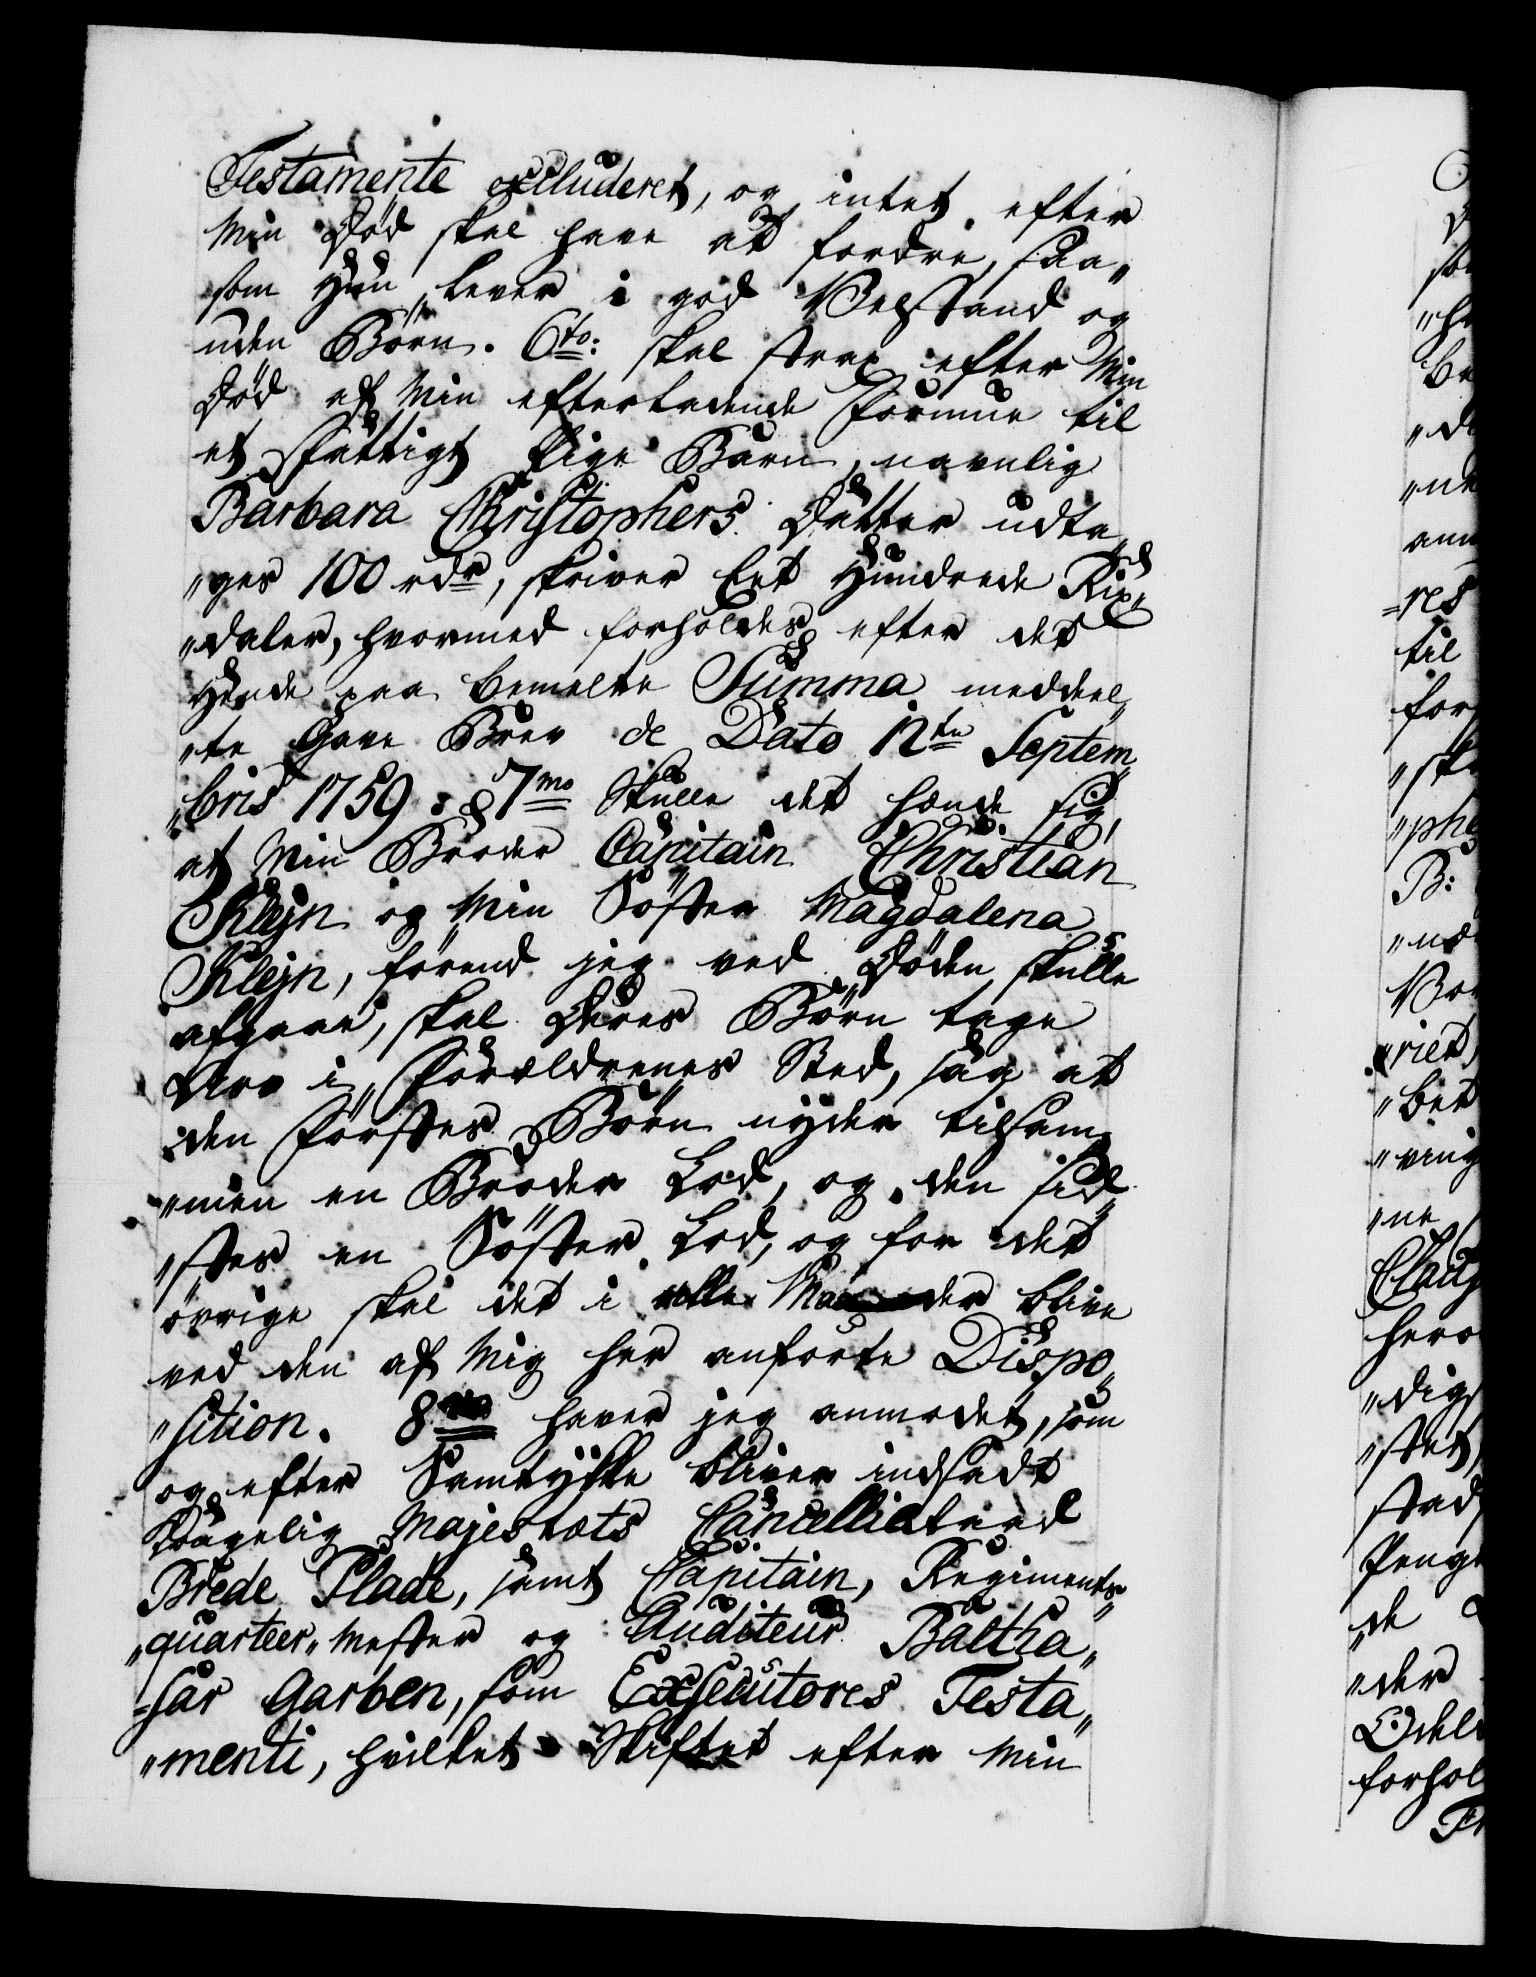 Testamente excluderet, og intet efter
Min Død skal have at fordre, saa„
som Hun lever i god Velstand og
uden Børn. 6to: skal strax efter Min
Død af Min efterladende Formue til
et fattigt Pige Barn, navnlig
Barbara Christophers Datter udta„
„ges 100 rdr, skriver Eet Hundrede Rix„
„daler, hvormed forholdes efter det
Hende paa bemelte Summa meddeel„
„te Gave Brev de Dato 12te Septem„
„bris 1759: 7mo Skulle det hænde sig,
at Min Broder Capitain Christian
Klejn og Min Søster Magdalena
Klejn, førend jeg ved Døden skulle
afgaae, skal Deres Børn tage
Arv i Forældrenes Sted, saa at
den Førstes Børn nyder tilsam„
„men en Broder Lod, og den sid„
„stes en Søster Lod, og for det
øvrige skal det i alle Maader blive
ved den af Mig her anførte Dispo„
„sition. 8vo haver jeg anmodet, som
og efter Samtykke bliver indsadt
Kongelig Majestæts Cancellieraad
Brede Plade, samt Capitain, Regiments„
„quarteer„Mester og Auditeur Baltha„
=sar Garben, som Exsecutores Testa„
„menti, hvilket Skiftet efter Min